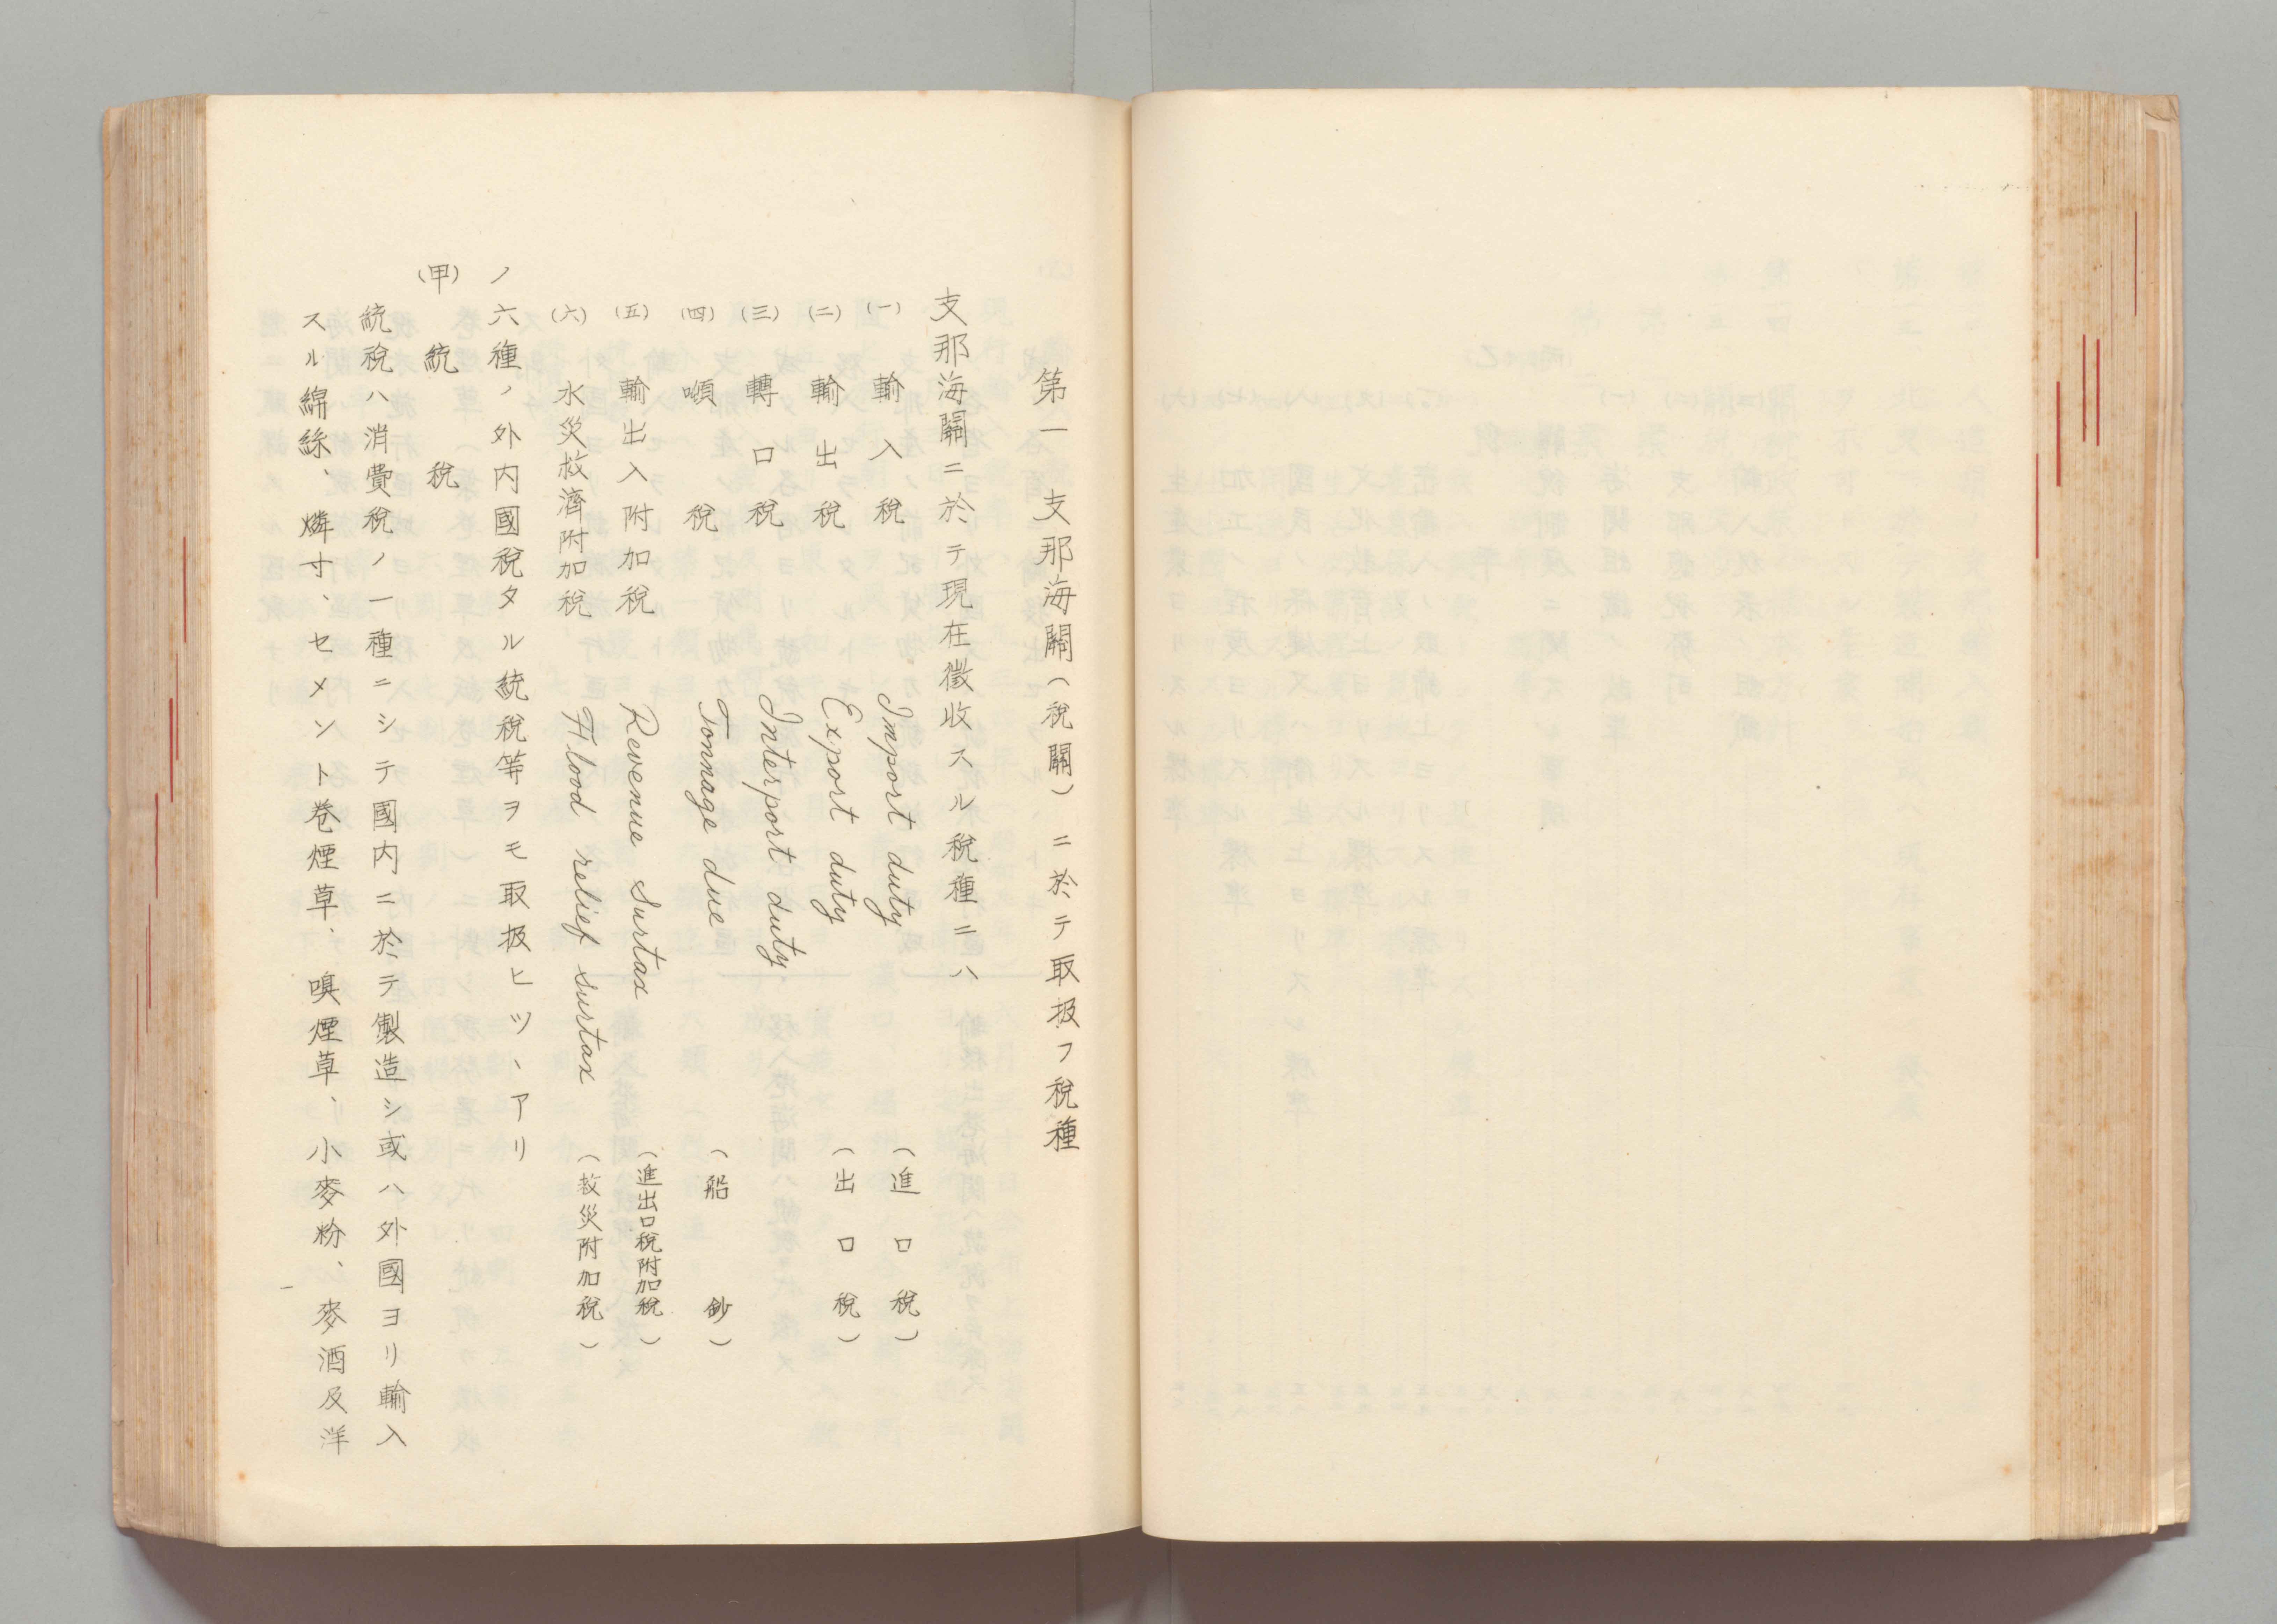 第一　支那海關（稅關）ニ於テ取扱フ稅種
支那海關ニ於テ現在徵收スル稅種ニハ
(一)　輸入稅　Import duty　（進口稅）
(二)　輸出稅　Export duty　（出口稅）
(三)　轉口稅　Interport duty
(四)　噸稅　Tonnage due　（船鈔）
(五)　輸出入附加稅　Revenue surtax　（進出口稅附加稅）
(六)　水災救濟附加稅　Flood relief surtax　（救災附加稅）
ノ六種ノ外內國稅タル統稅等ヲモ取扱ヒツヽアリ
(甲)　統稅
統稅ハ消費稅ノ一種ニシテ國內ニ於テ製造シ或ハ外國ヨリ輸入
スル綿絲、燐寸、セメント卷煙草、嗅煙草、小麥粉、麥酒及洋